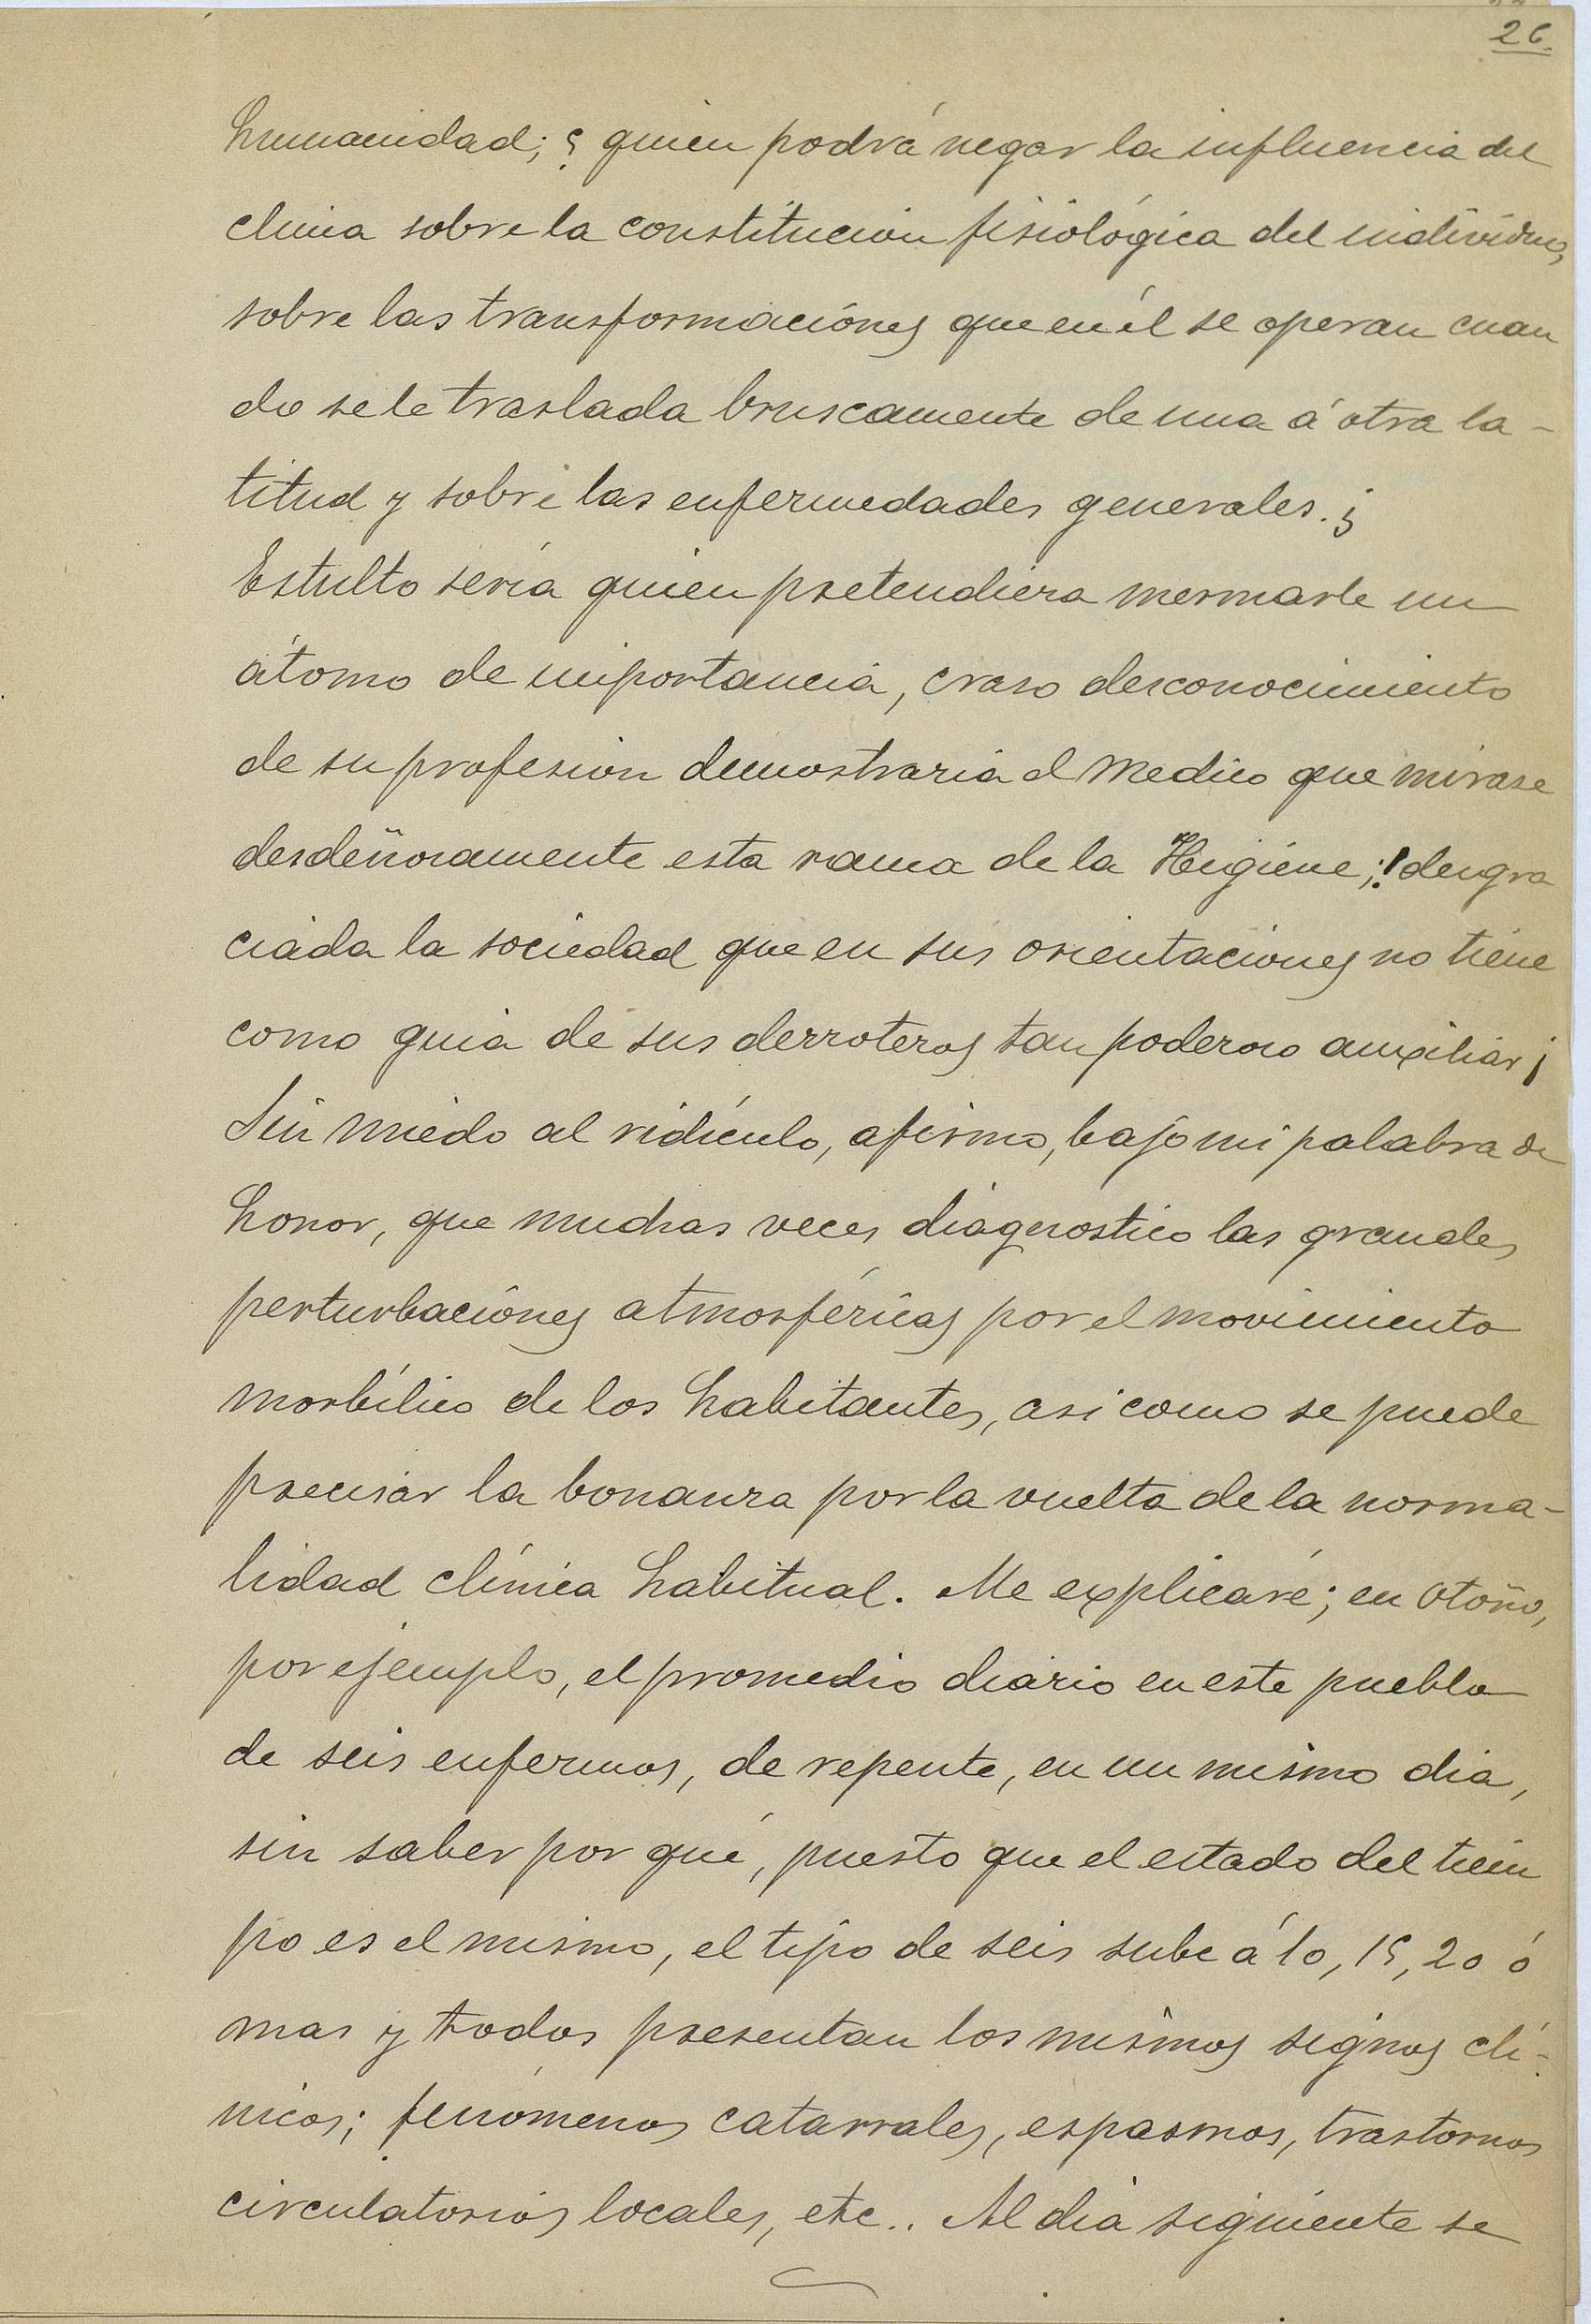 26.
humanidad; ¿ quien podrá negar la influencia del
clima sobre la constitucion fisiológica del individuo,
sobre las transformaciónes que en él se operan cuan
do se le traslada bruscamente de una á otra la-
titud y sobre las enfermedades generales. ¿
Estulto sería quien pretendiera mermarle un
átomo de importancia, craso desconocimiento
de su profesion demostraria el medico que mirase
desdeñosamente esta rama de la Higiene; ! desgra
ciada la sociedad que en sus orientaciones no tiene
como guia de sus derroteros tan poderoso auxiliar ¡
Sin miedo al ridículo, afirmo, bajo mi palabra de
honor, que muchas veces diagnostico las grandes
perturbaciónes atmosféricas por el movimiento
morbílico de los habitantes, asi como se puede
precisar la bonanza por la vuelta de la norma-
lidad clínica habitual. Me explicaré; en Otoño,
por ejemplo, el promedio diario en este pueblo
de seis enfermos, de repente, en un mismo dia,
sin saber por qué, puesto que el estado del tiem
po es el mismo, el tipo de seis sube á 10, 15, 20 ó
mas y todos presentan los mismos signos clí-
nicos; fenómenos catarrales, espasmos, trastornos
circulatorios locales, etc.. Al dia siguiente se